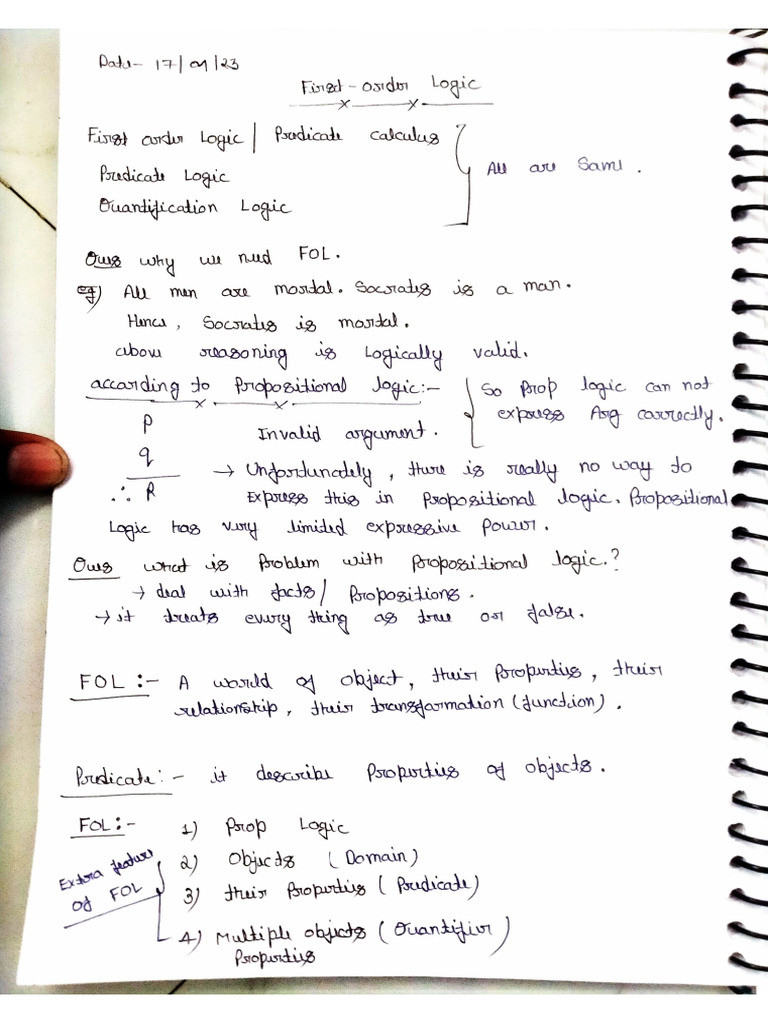 Date- 17/01/23
First-order Logic
First order Logic | Predicate calculus
Predicate Logic
Quantification Logic
All are same.
Ques why we need FOL.
eg) All men are mortal. Socrates is a man.
Hence, Socrates is mortal.
above reasoning is Logically valid.
according to Propositional logic:-
So Prop logic can not
express Arg correctly.
P
q
∴ R
Invalid argument.
→ Unfortunately, there is really no way to
Express this in Propositional logic. Propositional
Logic has very limited expressive Power.
Ques what is Problem with Propositional logic.?
→ deal with facts/ Propositions.
→ it treats every thing as true or false.
FOL :- A world of object, their Properties, their
relationship, their transformation (function).
Predicate:- it describe Properties of objects.
FOL:- 1) Prop Logic
2) Objects (Domain)
3) their Properties (Predicate)
4) Multiple objects (Quantifier)
Properties
Extra feature
of FOL